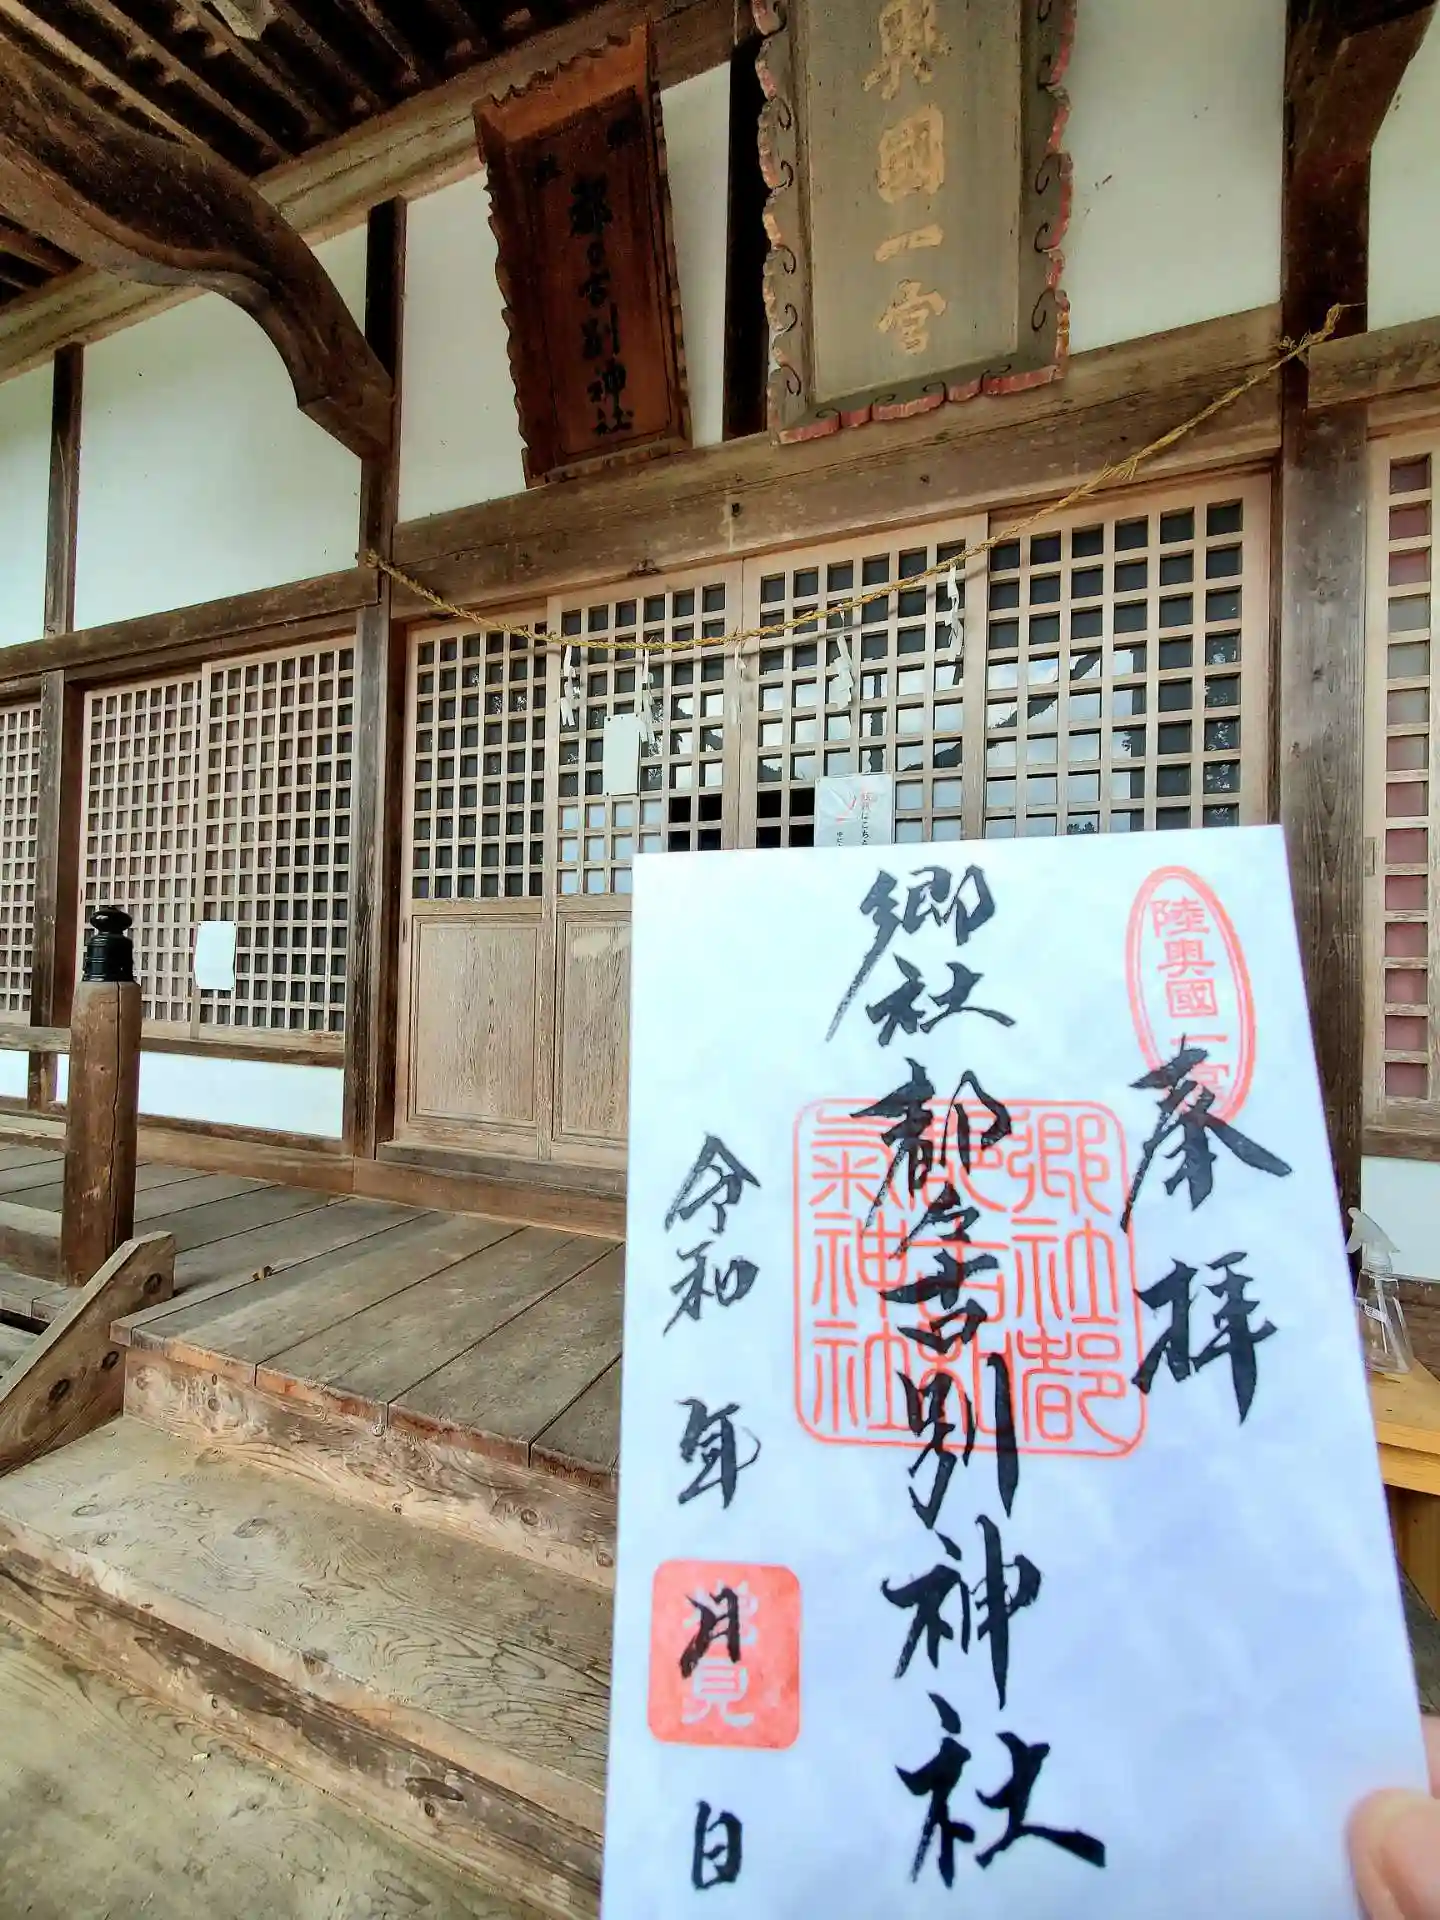 奥國一宮
都々古別神社
陸奥國一宮
奉拝
郷社 都々古別神社
郷社都
都古和
氣神社
令和 年 月 日